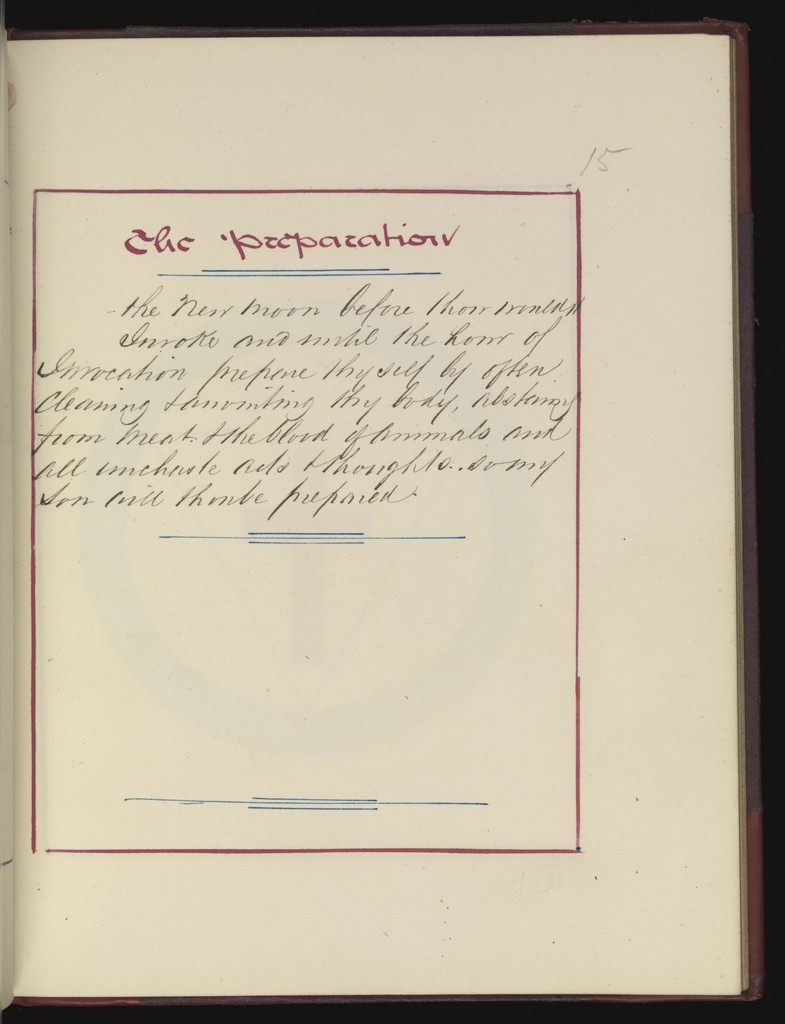 15
The Preparation
- the New Moon before thou wouldst
Invoke and until the hour of
Invocation prepare thyself by often
Cleaning & anointing thy body, abstaing
from meat & the blood of animals and
all unchaste acts & thoughts.. so my
Son will thou be prepared.